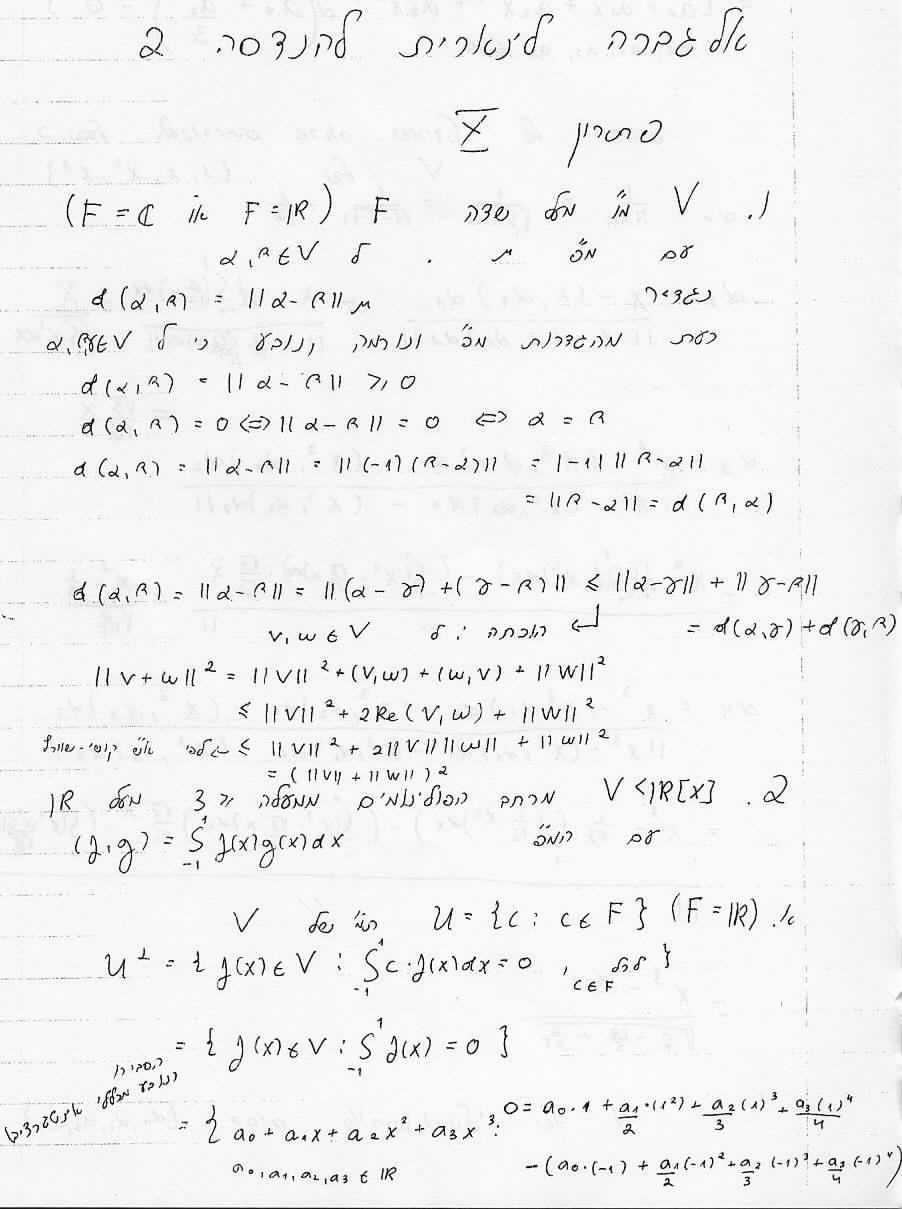 אלגברה לינארית להנדסה 2
פתרון X
1. V מ"ו מעל שדה F (F = ℝ או F = ℂ)
עם מ"פ . ל α, β ∈ V
נגדיר d(α, β) = ||α - β||
כעת מהגדרות מ"פ ונורמה, נובע כי ל α, β, γ ∈ V
d(α, β) = ||α - β|| ≥ 0
d(α, β) = 0 ⇔ ||α - β|| = 0 ⇔ α = β
d(α, β) = ||α - β|| = ||(-1)(β - α)|| = |-1| ||β - α||
= ||β - α|| = d(β, α)
d(α, β) = ||α - β|| = ||(α - γ) + (γ - β)|| ≤ ||α - γ|| + ||γ - β||
= d(α, γ) + d(γ, β)
הוכחה: ל v, w ∈ V
||v + w||² = ||v||² + (v, w) + (w, v) + ||w||²
≤ ||v||² + 2Re(v, w) + ||w||²
≤ ||v||² + 2||v|| ||w|| + ||w||² לפי א"ש קושי-שוורץ
= (||v|| + ||w||)²
2. V < ℝ[x] מרחב הפולינומים ממעלה ≤ 3 מעל ℝ
עם המ"פ (f, g) = ∫₋₁¹ f(x)g(x)dx
א. U = {c : c ∈ F} (F = ℝ) ת"מ של V
U^⊥ = { f(x) ∈ V : ∫₋₁¹ c · f(x)dx = 0 , לכל c ∈ F }
= { f(x) ∈ V : ∫₋₁¹ f(x) = 0 }
הסבירו
נובע מכללי אינטגרציה
= { a₀ + a₁x + a₂x² + a₃x³ : 0 = a₀·1 + a₁·(1²)/2 + a₂(1)³/3 + a₃(1)⁴/4
a₀, a₁, a₂, a₃ ∈ ℝ - (a₀·(-1) + a₁(-1)²/2 + a₂(-1)³/3 + a₃(-1)⁴/4)